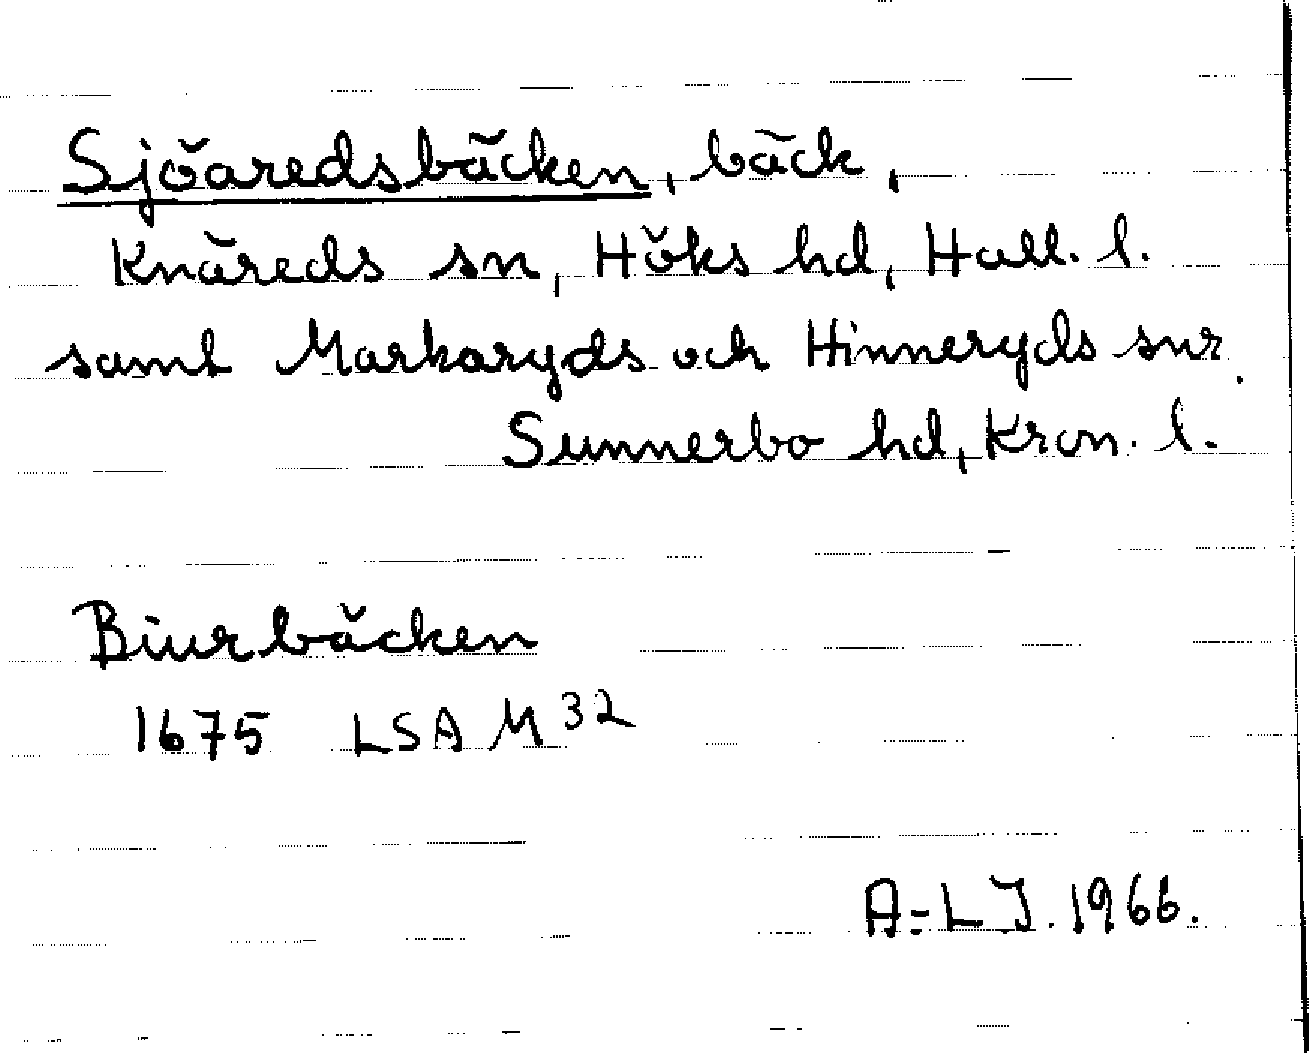 Sjöaredsbäcken, bäck,
Knäreds sn, Höks hd, Hall. l.
samt Markaryds och Hinneryds snr.
Sunnerbo hd, Kron. l.
Biurbäcken
1675 LSA M 32
A-L J. 1966.